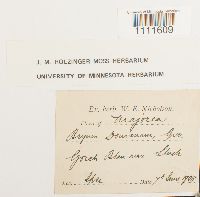 1111609
J. M. HOLZINGER MOSS HERBARIUM
UNIVERSITY OF MINNESOTA HERBARIUM
Ex. herb. W. E. Nicholson.
of Majorca
Bryum Donianum, Grev.
Gorch Blau near
Date, 7th June 1905